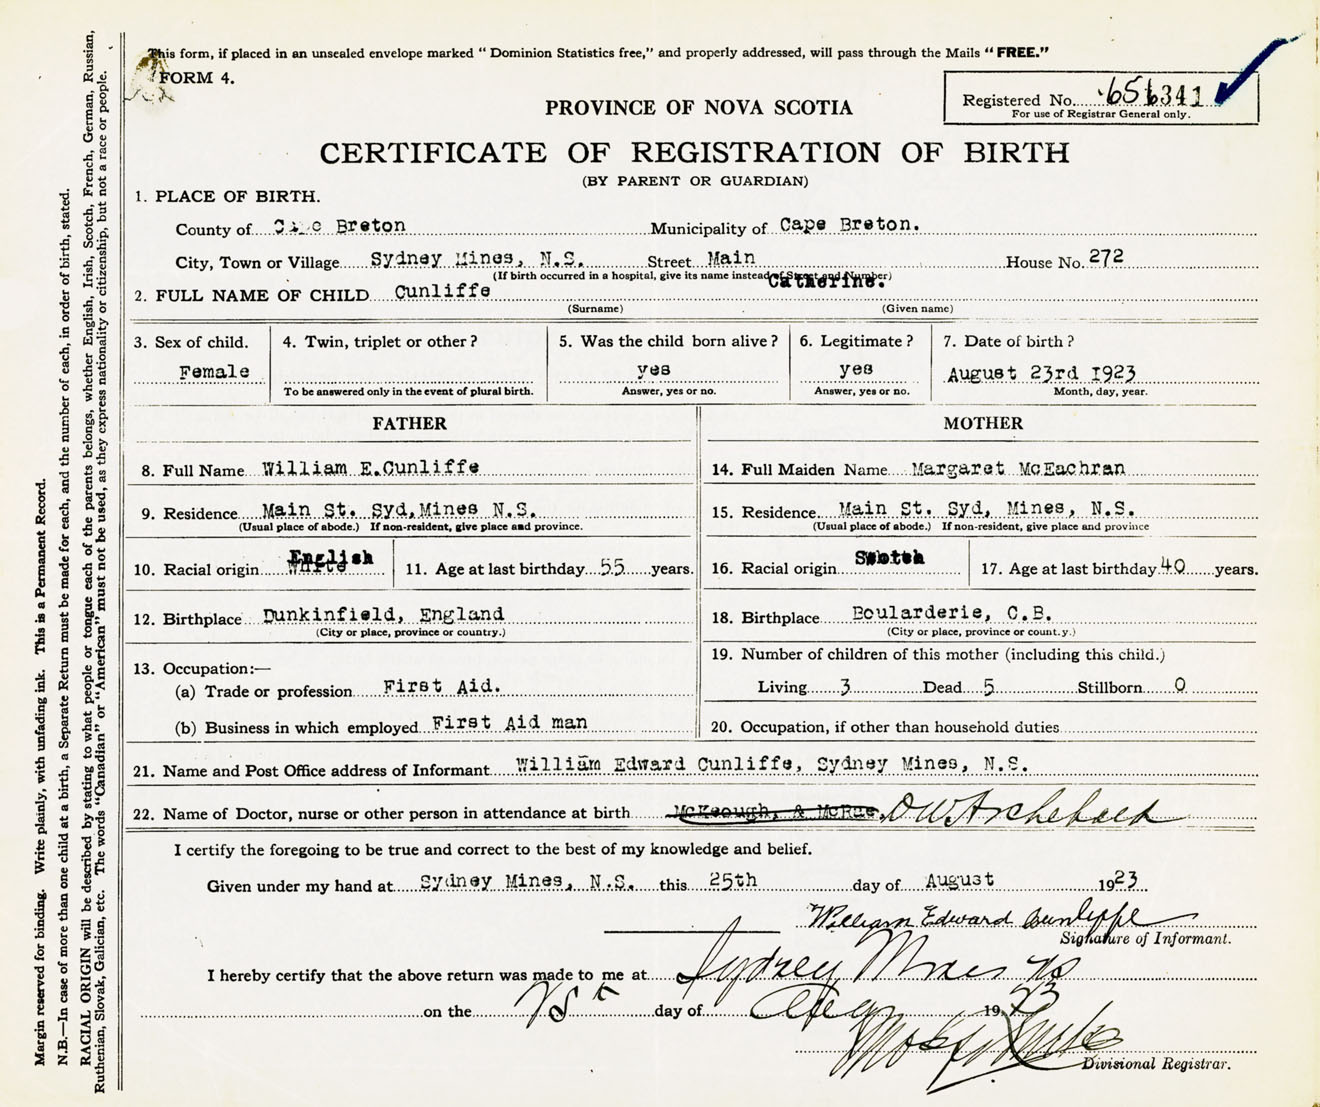 This form, if placed in an unsealed envelope marked “ Dominion Statistics free,” and properly addressed, will pass through the Mails “ FREE.”
FORM 4.
Registered No. 656341
For use of Registrar General only.
PROVINCE OF NOVA SCOTIA
CERTIFICATE OF REGISTRATION OF BIRTH
(BY PARENT OR GUARDIAN)
1. PLACE OF BIRTH.
County of Cape Breton Municipality of Cape Breton.
City, Town or Village Sydney Mines, N.S. Street Main House No. 272
(If birth occurred in a hospital, give its name instead of Street and Number)
2. FULL NAME OF CHILD Cunliffe Catherine.
(Surname) (Given name)
3. Sex of child. 4. Twin, triplet or other ? 5. Was the child born alive ? 6. Legitimate ? 7. Date of birth ?
Female yes yes August 23rd 1923
To be answered only in the event of plural birth. Answer, yes or no. Answer, yes or no. Month, day, year.
FATHER MOTHER
8. Full Name William E.Cunliffe 14. Full Maiden Name Margaret McEachran
9. Residence Main St. Syd,Mines N.S. 15. Residence Main St. Syd, Mines, N.S.
(Usual place of abode.) If non-resident, give place and province. (Usual place of abode.) If non-resident, give place and province
10. Racial origin White English 11. Age at last birthday 55 years. 16. Racial origin Scotch 17. Age at last birthday 40 years.
12. Birthplace Dunkinfield, England 18. Birthplace Boularderie, C.B.
(City or place, province or country.) (City or place, province or count.y.)
19. Number of children of this mother (including this child.)
13. Occupation:—
(a) Trade or profession First Aid. Living 3 Dead 5 Stillborn 0
(b) Business in which employed First Aid man 20. Occupation, if other than household duties
21. Name and Post Office address of Informant William Edward Cunliffe, Sydney Mines, N.S.
22. Name of Doctor, nurse or other person in attendance at birth McKeough, & McRae. D W Archebald
I certify the foregoing to be true and correct to the best of my knowledge and belief.
Given under my hand at Sydney Mines, N.S. this 25th day of August 1923
William Edward Cunliffe
Signature of Informant.
I hereby certify that the above return was made to me at Sydney Mines NS
on the 25th day of Aug 1923
Divisional Registrar.
Margin reserved for binding. Write plainly, with unfading ink. This is a Permanent Record.
N.B.—In case of more than one child at a birth, a Separate Return must be made for each, and the number of each, in order of birth, stated.
RACIAL ORIGIN will be described by stating to what people or tongue each of the parents belongs, whether English, Irish, Scotch, French, German, Russian,
Ruthenian, Slovak, Galician, etc. The words “Canadian” or “American” must not be used, as they express nationality or citizenship, but not a race or people.